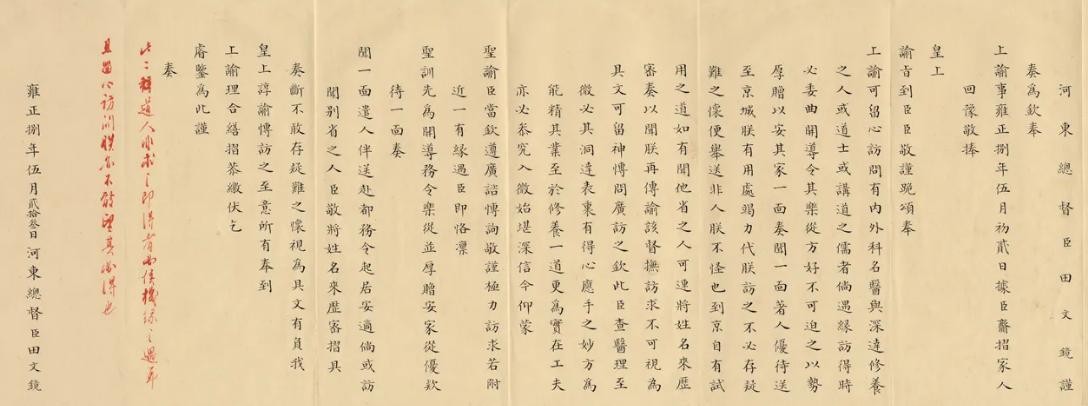 河東總督臣田文鏡謹
奏為欽奉
上諭事雍正捌年伍月初貳日據臣齎摺家人
回豫敬捧
皇上
諭旨到臣臣敬謹跪頌奉
上諭可留心訪問有內外科名醫與深達修養
之人或道士或講道之儒者倘遇緣訪得時
必委曲開導令其樂從方好不可迫之以勢
厚贈以安其家一面奏聞一面著人優待送
至京城朕有用處竭力代朕訪之不必存疑
難之懷便舉送非人朕不怪也到京自有試
用之道如有聞他省之人可速將姓名來歷
審奏以聞朕再傳諭該督撫訪求不可視為
具文可留神博問廣訪之欽此臣查醫理至
微必其洞達表裏有得心應手之妙方為
能精其業至於修養一道更為實在工夫
亦必叅究入微始堪深信今仰蒙
聖諭臣當欽遵廣諮博詢敬謹極力訪求若附
近一有緣遇臣即恪凜
聖訓先為開導務令樂從並厚贈安家從優欵
待一面奏
聞一面遣人伴送赴都務令起居安適倘或訪
聞別省之人臣敬將姓名來歷密摺具
奏斷不敢存疑難之懷視為具文有負我
皇上諄諭博訪之至意所有奉到
上諭理合繕摺恭繳伏乞
睿鑒為此謹
奏
此二種道人非求之即得者俟機緣之遇
且留心訪問朕亦不望其必得也
雍正捌年伍月貳拾叁日河東總督臣田文鏡